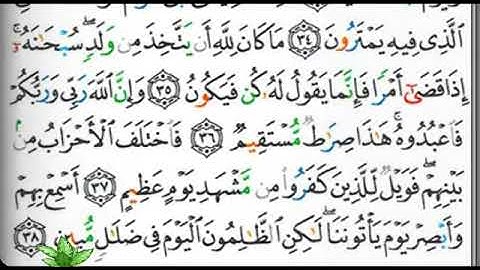 ٱلَّذِى فِيهِ يَمْتَرُونَ ٣٤ مَا كَانَ لِلَّهِ أَن يَتَّخِذَ مِن وَلَدٍۖ سُبْحَٰنَهُۥٓۚ
إِذَا قَضَىٰٓ أَمْرًا فَإِنَّمَا يَقُولُ لَهُۥ كُن فَيَكُونُ ٣٥ وَإِنَّ ٱللَّهَ رَبِّى وَرَبُّكُمْ
فَٱعْبُدُوهُۚ هَٰذَا صِرَٰطٌ مُّسْتَقِيمٌ ٣٦ فَٱخْتَلَفَ ٱلْأَحْزَابُ مِنۢ
بَيْنِهِمْۖ فَوَيْلٌ لِّلَّذِينَ كَفَرُوا۟ مِن مَّشْهَدِ يَوْمٍ عَظِيمٍ ٣٧ أَسْمِعْ بِهِمْ
وَأَبْصِرْ يَوْمَ يَأْتُونَنَاۖ لَٰكِنِ ٱلظَّٰلِمُونَ ٱلْيَوْمَ فِى ضَلَٰلٍ مُّبِينٍ ٣٨